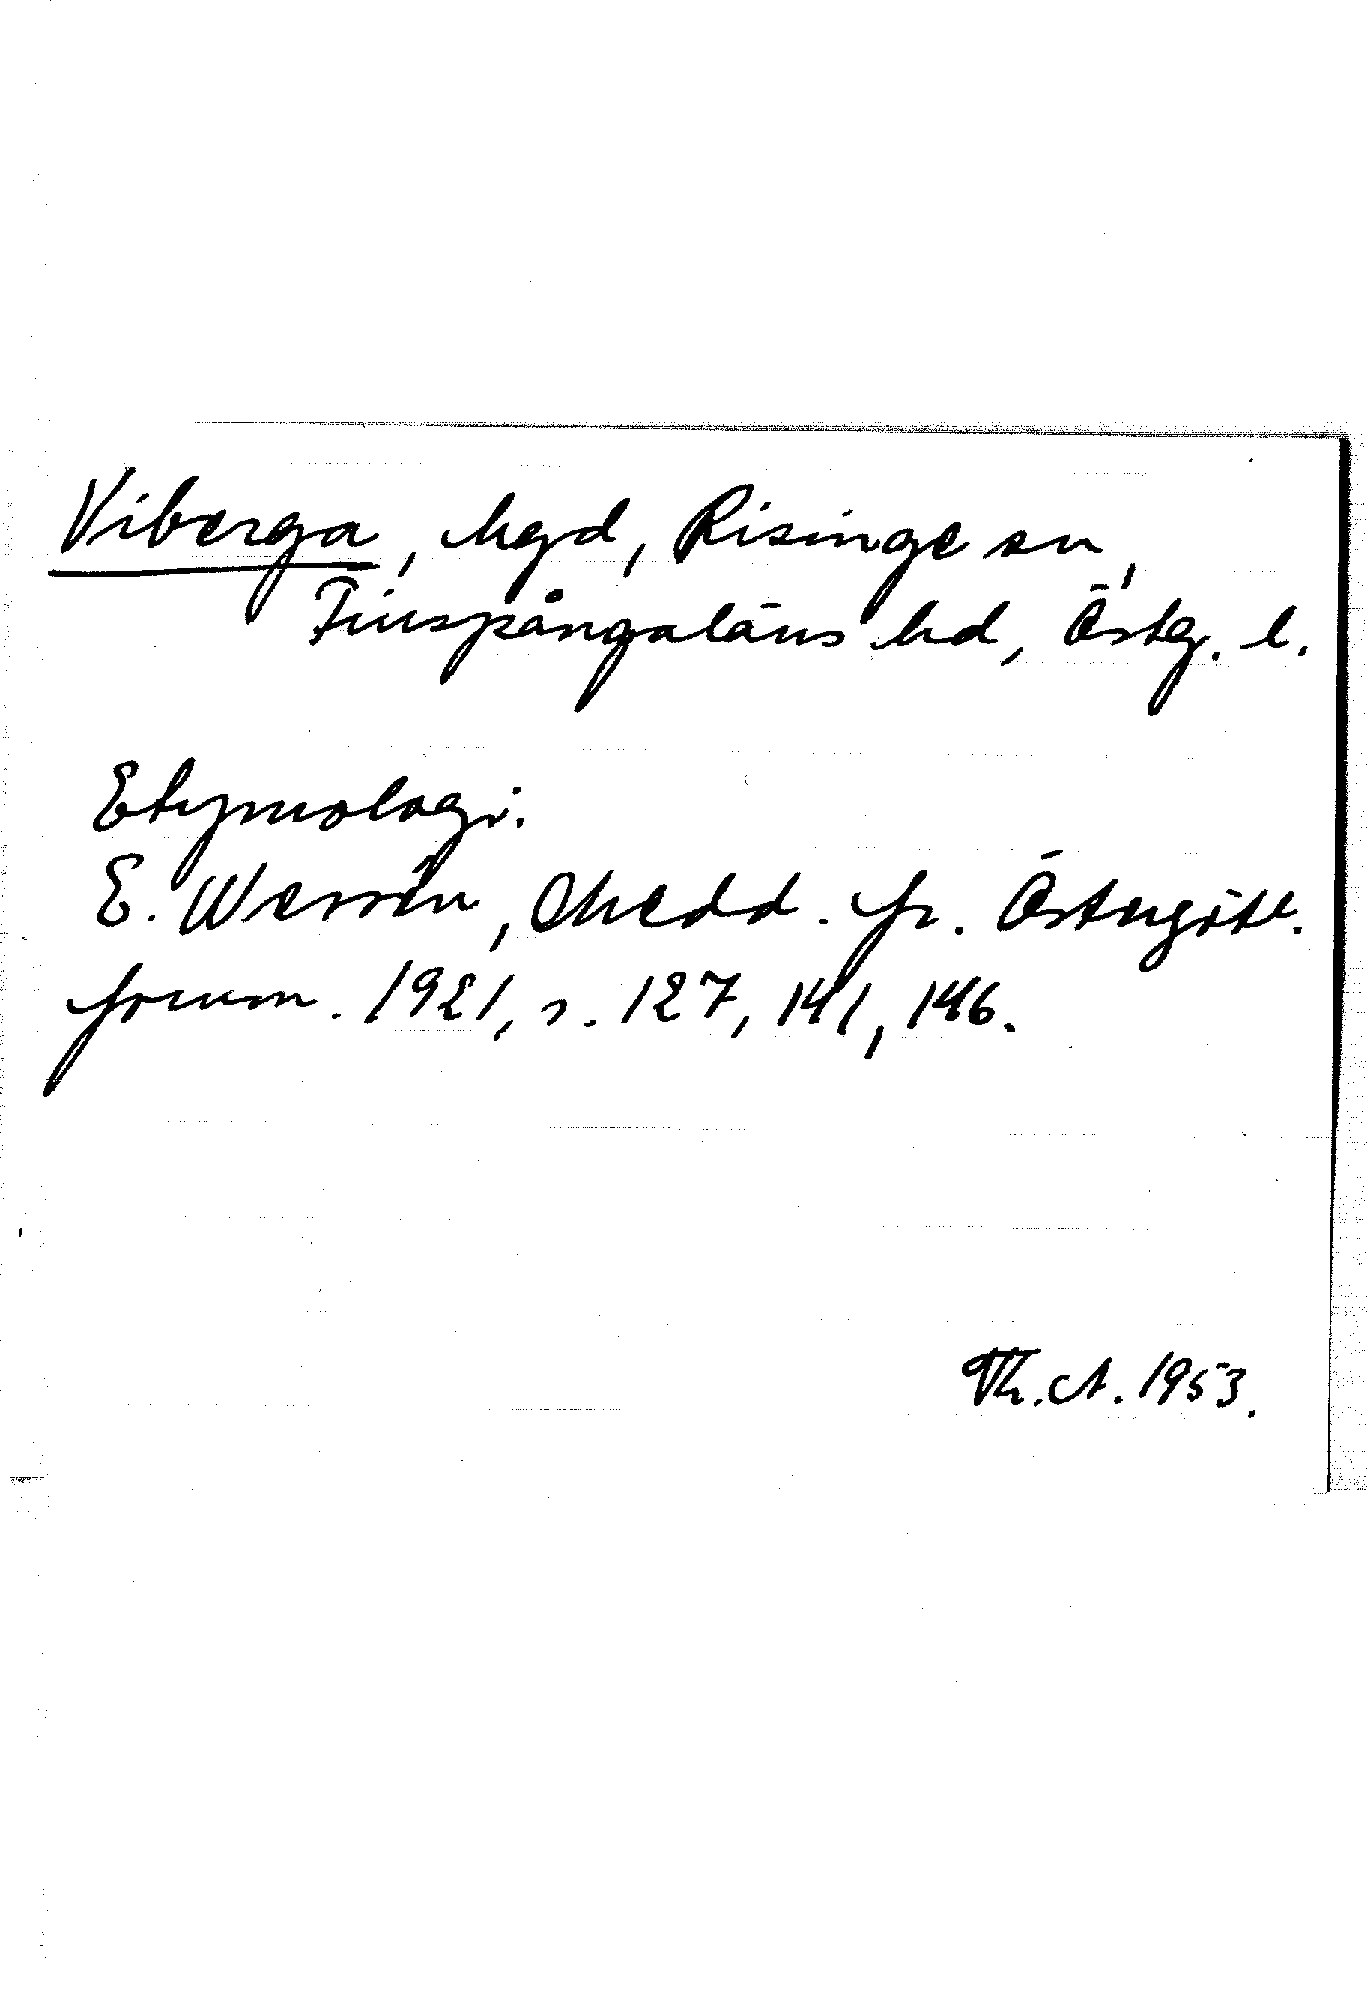 Viberga, hgd, Risinge sn,
Finspångaläns hd, Östg. l.
Etymologi:
E. Wessén, Medd. fr. Östergötl.
fornm. 1921, s. 127, 141, 146.
Th. A. 1953.